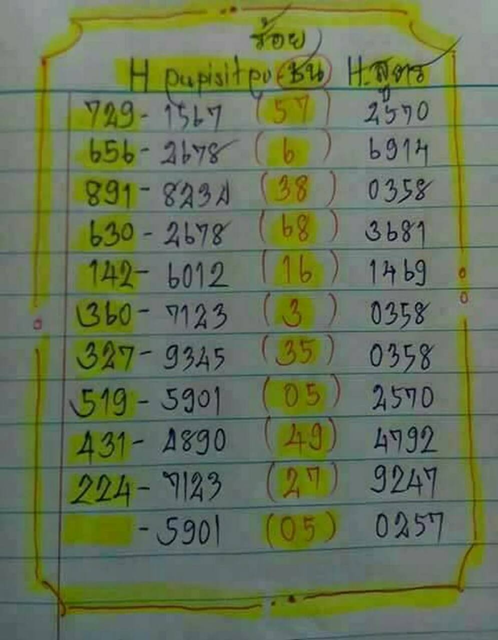 ร้อย
H pupisitpu (ชน) H.สูตร
729 - 1567 (57) 2570
656 - 2678 (6) 6914
891 - 8234 (38) 0358
630 - 2678 (68) 3681
142 - 6012 (16) 1469
360 - 7123 (3) 0358
327 - 9345 (35) 0358
519 - 5901 (05) 2570
431 - 4890 (49) 4792
224 - 7123 (27) 9247
- 5901 (05) 0257